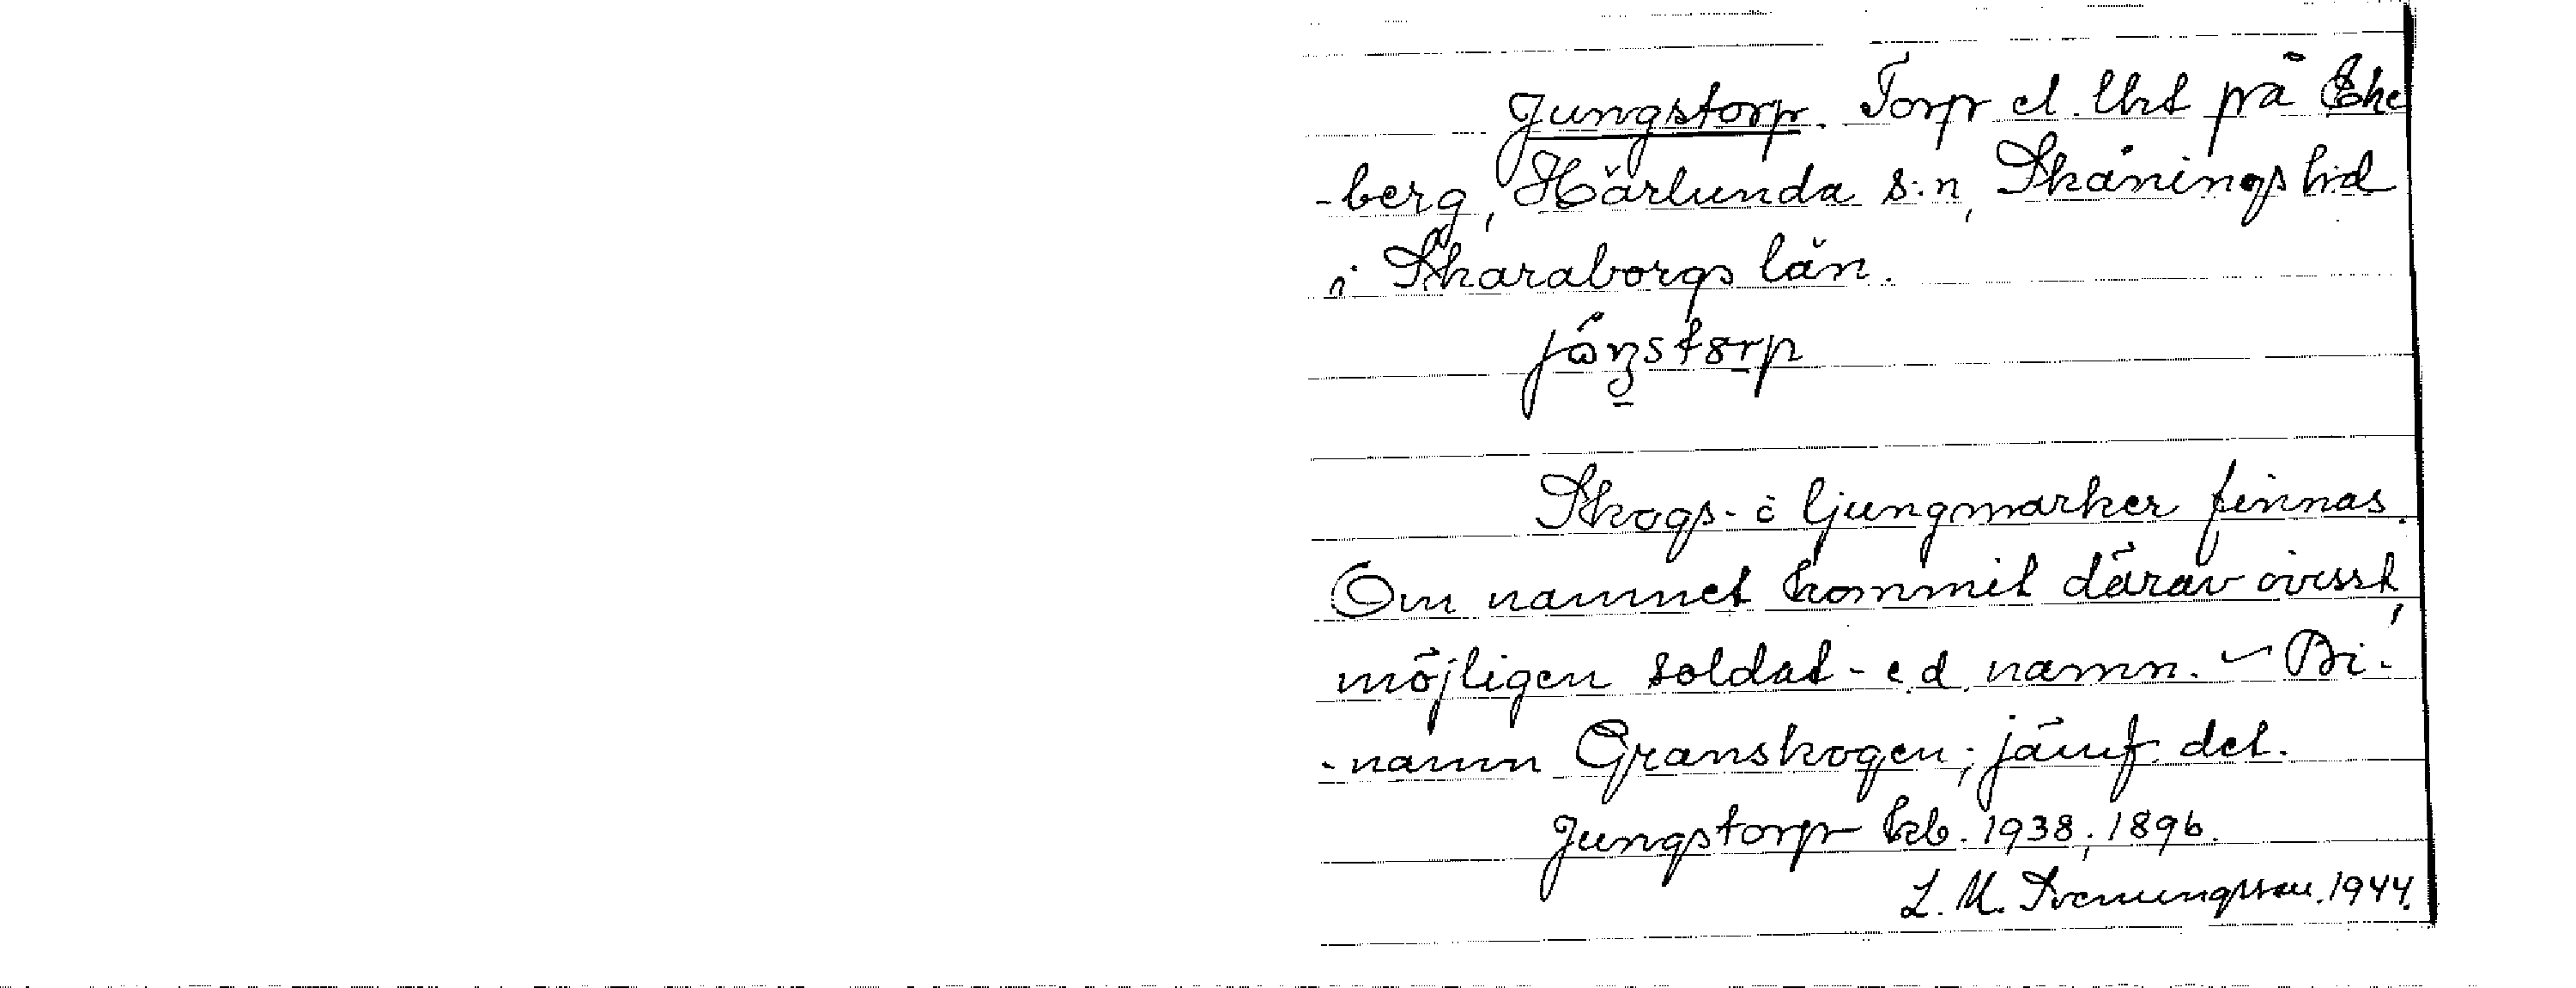 Jungstorp. Torp el. lht på Eke
-berg, Härlunda s:n, Skånings hd
i Skaraborgs län.
Skogs- o ljungmarker finnas.
Om namnet kommit därav ovisst,
möjligen soldat- e.d. namn. – Bi-
-namn Granskogen; jämf. det.
Jungstorp kb. 1938; 1896.
L. M. Svenungsson. 1944.